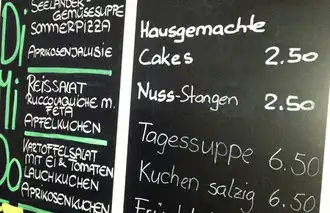 SEELÄNDER
GEMÜSESUPPE
SOMMERPIZZA
Di
APRIKOSENJALUSIE
Mi
REISSALAT
RUCCOLAQUICHE M.
FETA
APFELKUCHEN
Do
KARTOFFELSALAT
MIT EI & TOMATEN
LAUCHKUCHEN
APRIKOSENKUCHEN
Hausgemachte
Cakes 2.50
Nuss-Stangen 2.50
Tagessuppe 6.50
Kuchen salzig 6.50